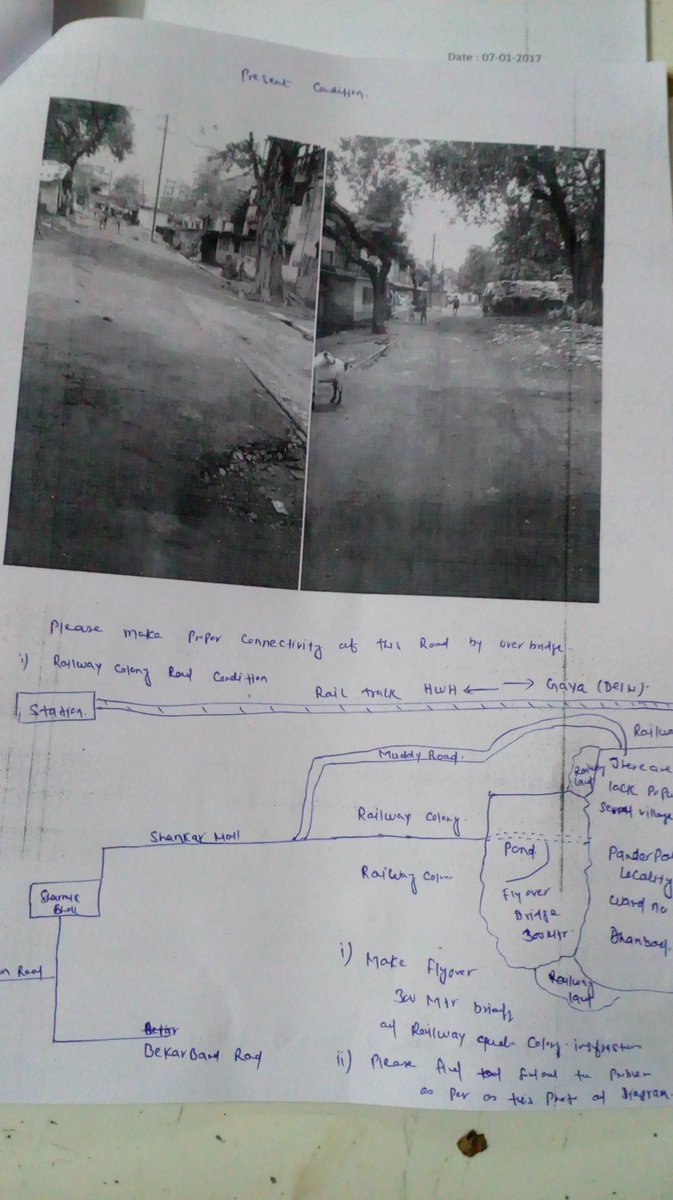 Date : 07-01-2017
Present Condition.
Please make Proper Connectivity of this Road by over bridge
i) Railway Colony Road Condition
Rail track HWH ← → Gaya (Delhi).
Station.
Railway
Muddy Road.
Railway Land
There are
lack Proper
several village
Railway Colony
Shankar Mall
Pond
Railway Colony
Flyover
Bridge
300 Mtr.
Locality
ward no
Dhanbad
Road
BekarBand Road
Railway
Land
i) Make Flyover
300 Mtr
Railway Colony
ii) Please
as Per as this Photo of Diagram.